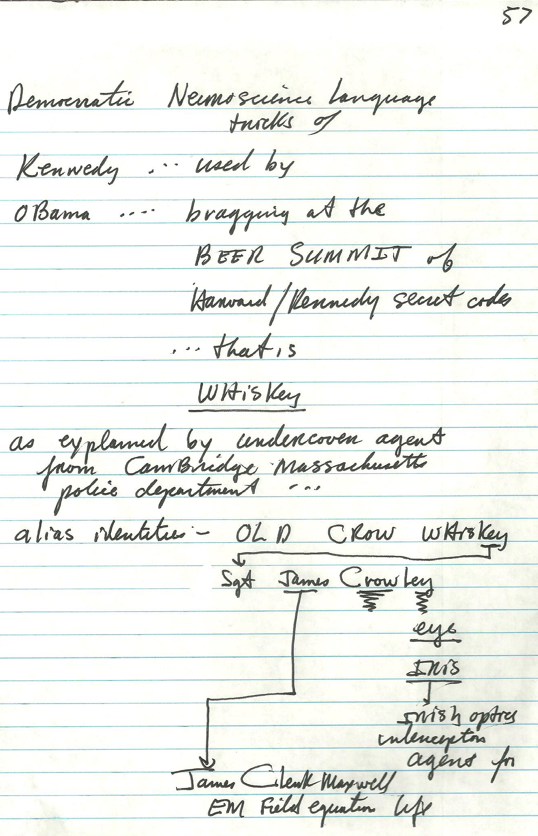 57
Democratic Neuroscience Language
tricks of
Kennedy ... used by
OBama .... bragging at the
BEER SUMMIT of
Harvard/Kennedy secret codes
... that is
WHisKey
as explained by undercover agent
from CamBridge Massachusetts
police department ...
alias identities - OLD CROW WHisKey
Sgt James Crowley
eye
IRis
IRish optics
interceptor
agent for
James Clerk Maxwell
EM Field equation life